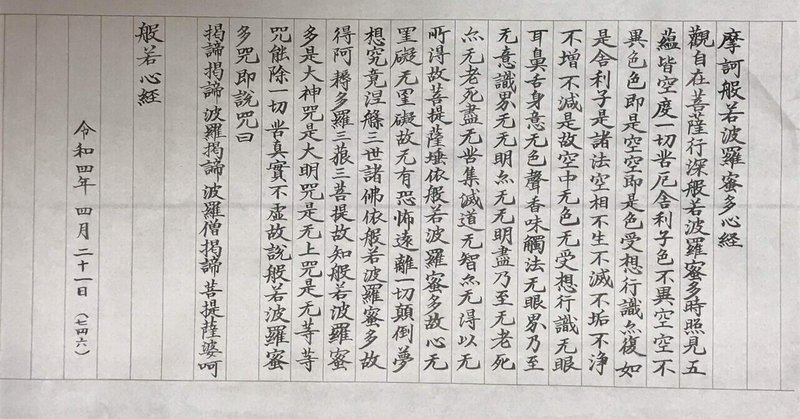 摩訶般若波羅蜜多心経
觀自在菩薩行深般若波羅蜜多時照見五
蘊皆空度一切苦厄舍利子色不異空空不
異色色即是空空即是色受想行識亦復如
是舍利子是諸法空相不生不滅不垢不浄
不増不減是故空中无色无受想行識无眼
耳鼻舌身意无色聲香味觸法无眼界乃至
无意識界无无明亦无无明盡乃至无老死
亦无老死盡无苦集滅道无智亦无得以无
所得故菩提薩埵依般若波羅蜜多故心无
罣礙无罣礙故无有恐怖遠離一切顛倒夢
想究竟涅槃三世諸佛依般若波羅蜜多故
得阿耨多羅三藐三菩提故知般若波羅蜜
多是大神咒是大明咒是无上咒是无等等
咒能除一切苦真實不虛故説般若波羅蜜
多咒即説咒曰
揭諦揭諦 波羅揭諦 波羅僧揭諦 菩提薩婆呵
般若心経
令和四年 四月 二十一日 (七四六)